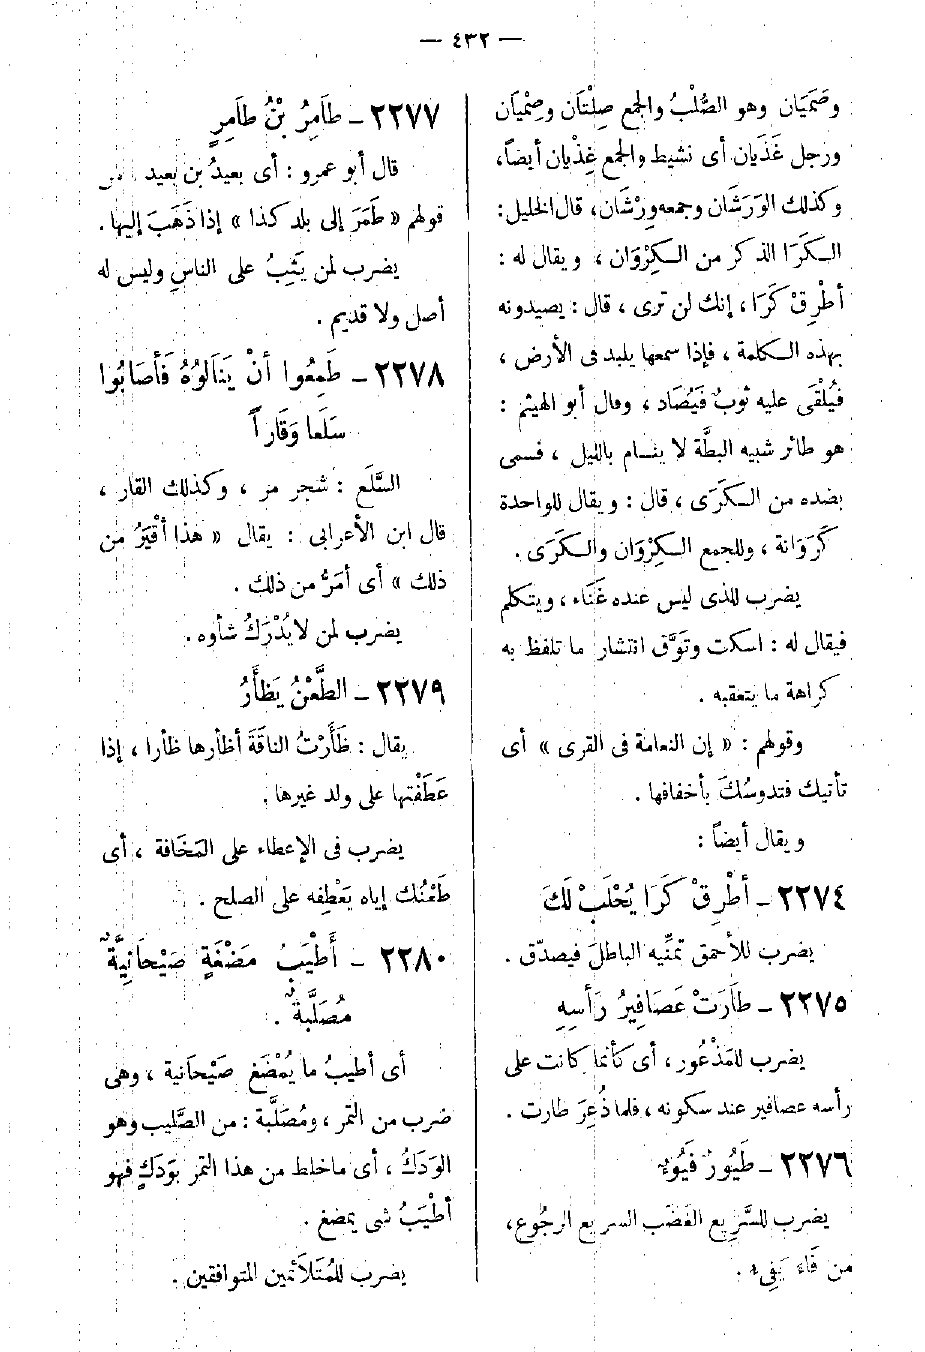 — ٤٣٢ —
وصَمَيَان وهو الصُّلْبُ والجمع صِلْتَان وصِمْيَان
ورجل غَذَيان أى نشيط والجمع غِذْيان أيضاً،
وكذلك الوَرَشَان وجمعه وِرْشَان، قال الخليل:
الكَرَا الذكر من الكِرْوَان ، ويقال له :
أطْرِقْ كَرَا ، إنك لن ترى ، قال : يصيدونه
بهذه الكلمة ، فإذا سمعها يلبد فى الأرض ،
فيُلْقَى عليه ثوبٌ فيُصَاد ، وقال أبو الهيثم :
هو طائر شبيه البطَّة لا ينام بالليل ، فسمى
بضده من الكَرَى ، قال : ويقال للواحدة
كَرَوَانة ، وللجمع الكِرْوَان والكَرَى .
يضرب للذى ليس عنده غَنَاء ، ويتكلم
فيقال له : اسكت وتَوَقَّ انتشار ما تلفظ به
كراهة ما يتعقبه .
وقولهم : « إن النعامة فى القرى » أى
تأتيك فتدوسُكَ بأخفافها .
ويقال أيضاً :
٢٢٧٤ - أطْرِقْ كَرَا يُحْلَبْ لَكَ
يضرب للأحمق تمنِّيه الباطلَ فيصدّق .
٢٢٧٥ - طَارَتْ عَصَافِيرُ رَأسِهِ
يضرب للمَذْعُور ، أى كأنما كانت على
رأسه عصافير عند سكونه ، فلما ذُعِرَ طارت .
٢٢٧٦ - طَيُورٌ فَيُوءٌ
يضرب للسَّرِيع الغضَب السريع الرجُوع،
من فَاء يَفِىء .
٢٢٧٧ - طَامِرُ بْنُ طَامِرٍ
قال أبو عمرو : أى بعيدُ بن بعيد من
قولهم « طَمَرَ إلى بلد كذا » إذا ذَهَبَ إليها .
يضرب لمن يَثِبُ على الناسِ وليس له
أصل ولا قديم .
٢٢٧٨ - طَمِعُوا أنْ يَنَالُوهُ فَأصَابُوا
سَلَعا وَقَاراً
السَّلَع : شجر مر ، وكذلك القار ،
قال ابن الأعرابى : يقال « هذا أقْيَرُ من
ذلك » أى أمَرُّ من ذلك .
يضرب لمن لا يُدْرَكُ شأوه .
٢٢٧٩ - الطَّعْنُ يَظْأَرُ
يقال : ظَأَرْتُ الناقةَ أظأرها ظأرا ، إذا
عَطَفْتها على ولد غيرها .
يضرب فى الإعطاء على المَخَافة ، أى
طَعْنُك إياه يَعْطِفه على الصلح .
٢٢٨٠ - أَطْيَبُ مَضْغَةٍ صَيْحَانِيَّةٌ
مُصَلَّبَةٌ .
أى أطيبُ ما يُمْضَغ صَيْحانية ، وهى
ضرب من التمر ، ومُصَلَّبة : من الصَّليب وهو
الوَدَكُ ، أى ما خلط من هذا التمر بوَدَكٍ فهو
أطْيَبُ شى يمضغ .
يضرب للمُتَلَائمين المتوافقين .